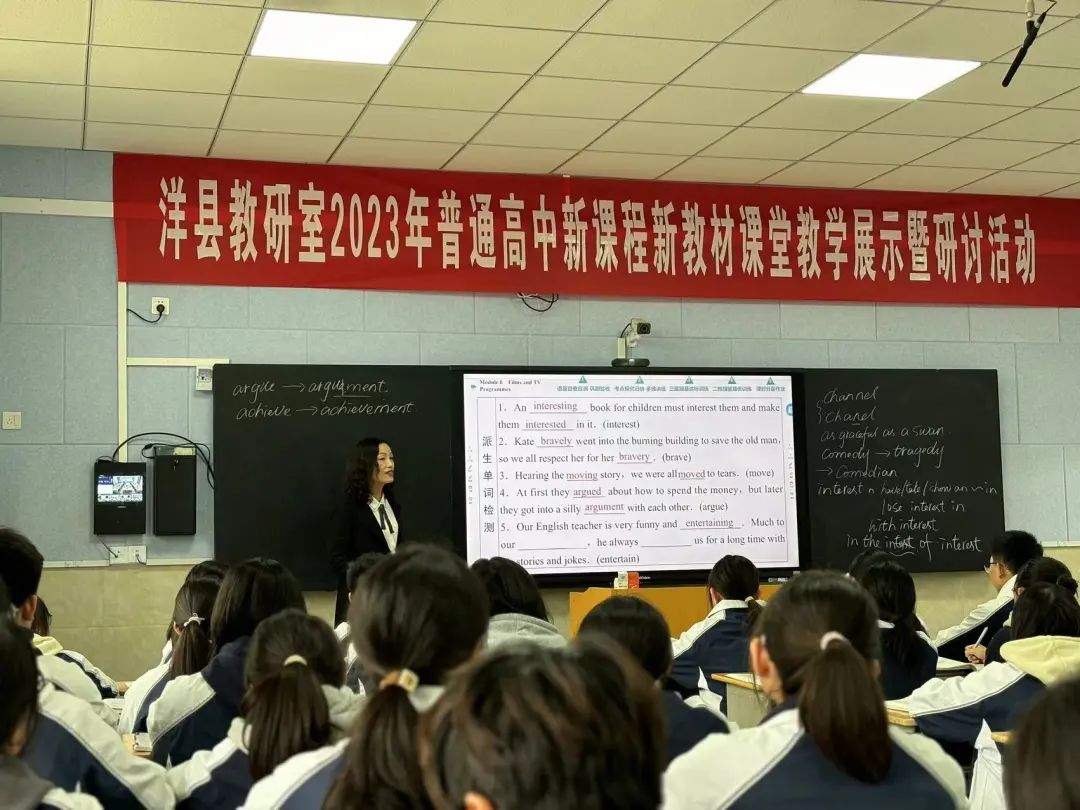 洋县教研室2023年普通高中新课程新教材课堂教学展示暨研讨活动
argue → argument
achieve → achievement
Module 6 Films and TV
Programmes
派生单词检测
1. An interesting book for children must interest them and make
them interested in it. (interest)
2. Kate bravely went into the burning building to save the old man,
so we all respect her for her bravery. (brave)
3. Hearing the moving story, we were all moved to tears. (move)
4. At first they argued about how to spend the money, but later
they got into a silly argument with each other. (argue)
5. Our English teacher is very funny and entertaining. Much to
our ____________, he always _________ us for a long time with
stories and jokes. (entertain)
channel
Chanel
as graceful as a swan
Comedy → tragedy
→ Comedian
interest n have/take/show an in
lose interest in
with interest
in the of interest